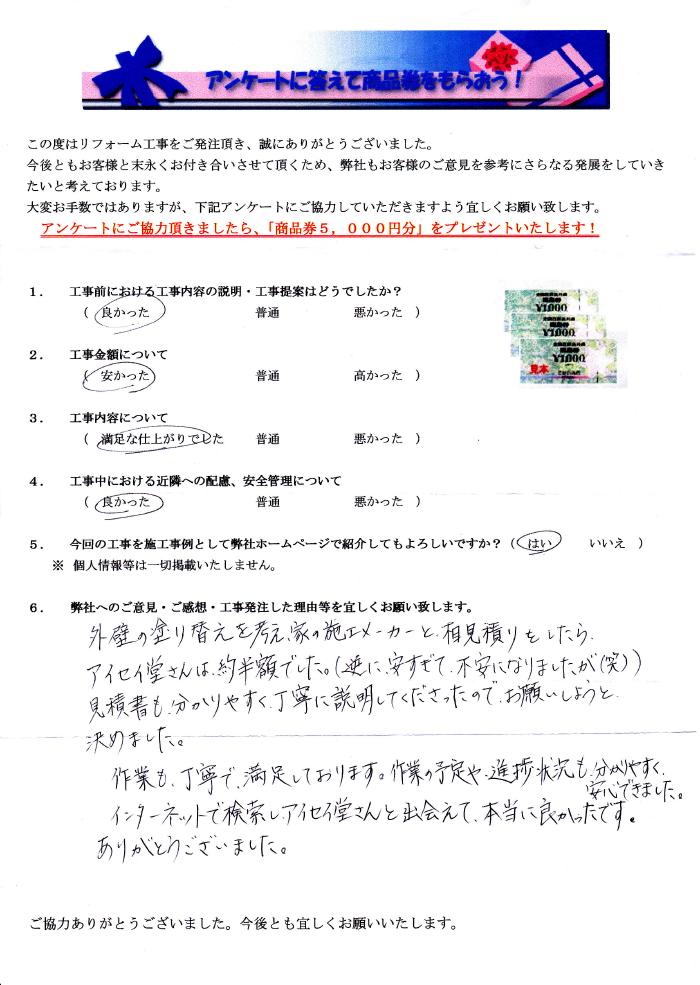 アンケートに答えて商品券をもらおう！
この度はリフォーム工事をご発注頂き、誠にありがとうございました。
今後ともお客様と末永くお付き合いさせて頂くため、弊社もお客様のご意見を参考にさらなる発展をしていき
たいと考えております。
大変お手数ではありますが、下記アンケートにご協力していただきますよう宜しくお願い致します。
アンケートにご協力頂きましたら、「商品券５，０００円分」をプレゼントいたします！
１． 工事前における工事内容の説明・工事提案はどうでしたか？
（ 良かった 普通 悪かった ）
¥1,000
¥1,000
¥1,000
見本
２． 工事金額について
（ 安かった 普通 高かった ）
３． 工事内容について
（ 満足な仕上がりでした 普通 悪かった ）
４． 工事中における近隣への配慮、安全管理について
（ 良かった 普通 悪かった ）
５． 今回の工事を施工事例として弊社ホームページで紹介してもよろしいですか？（ はい いいえ ）
※ 個人情報等は一切掲載いたしません。
６． 弊社へのご意見・ご感想・工事発注した理由等を宜しくお願い致します。
外壁の塗り替えを考え、家の施工メーカーと、相見積りをしたら、
アイセイ堂さんは、約半額でした。（逆に、安すぎて、不安になりましたが（笑））
見積書も、分かりやすく、丁寧に説明してくださったので、お願いしようと、
決めました。
作業も、丁寧で、満足しております。作業の予定や、進捗状況も、分かりやすく、
安心できました。
インターネットで検索し、アイセイ堂さんと出会えて、本当に良かったです。
ありがとうございました。
ご協力ありがとうございました。今後とも宜しくお願いいたします。